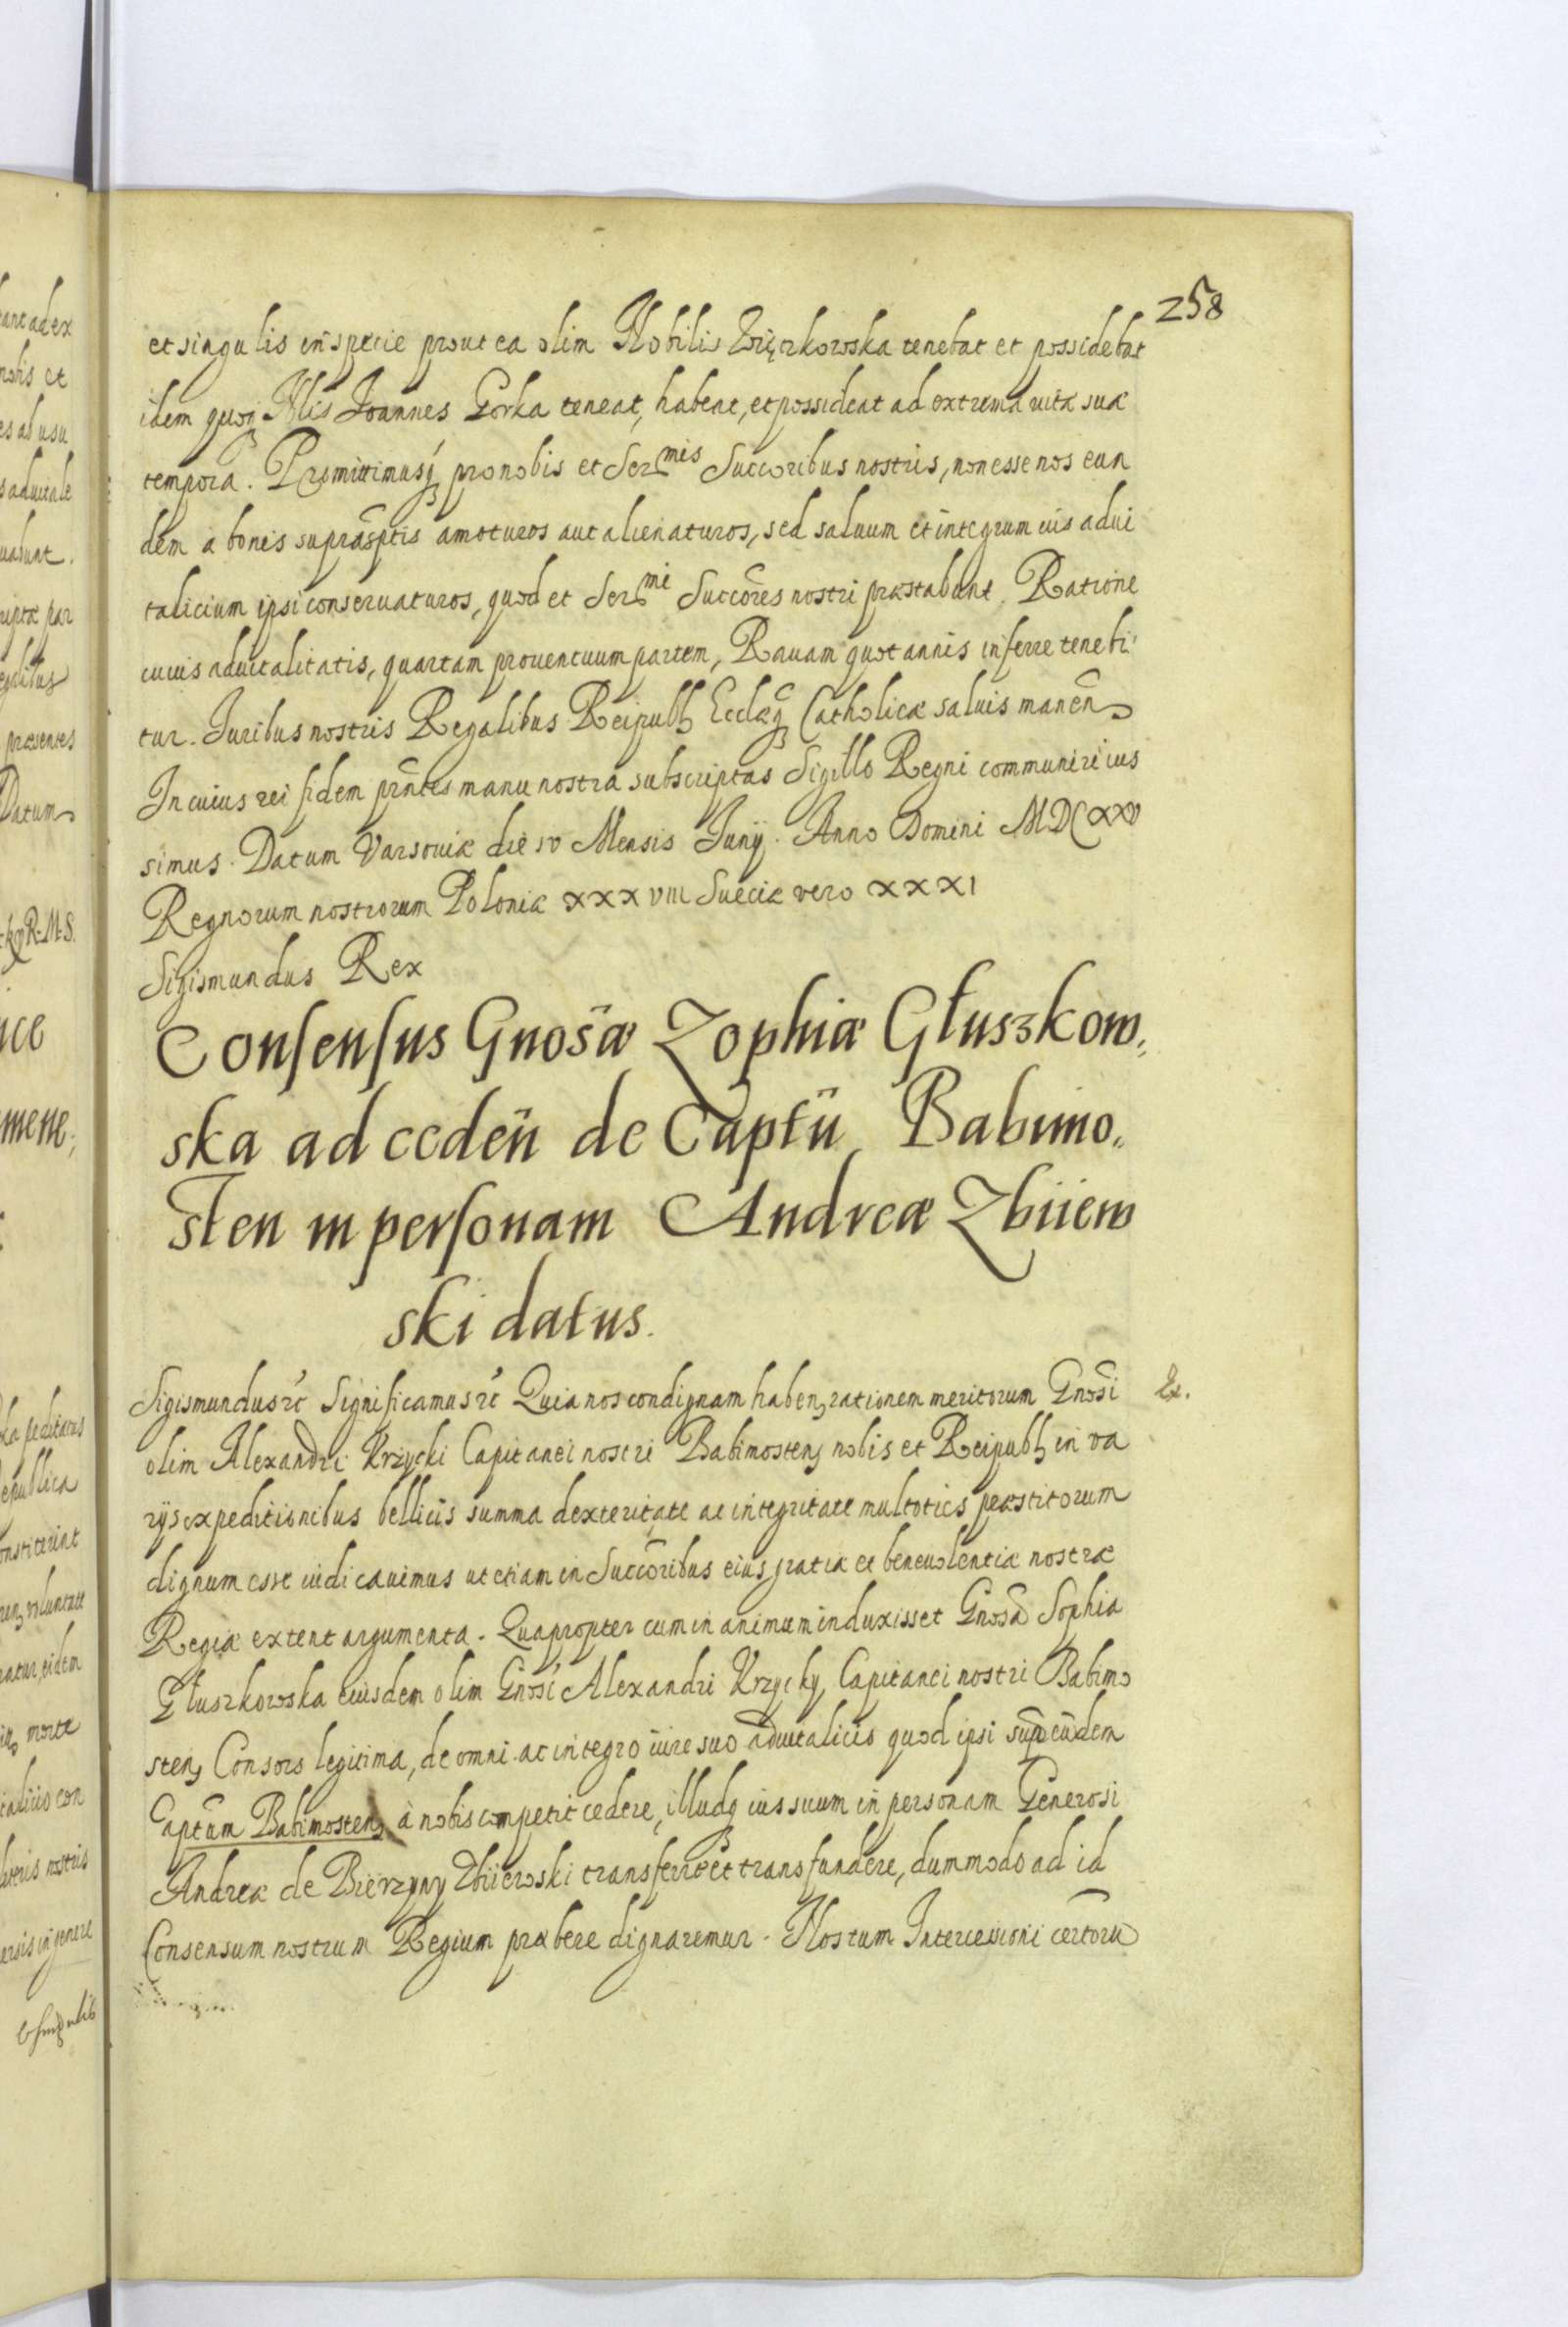 258
et singulis in specie prout ea olim Nobilis Więczkowska tenebat et possidebat
idem quoq Nlis Joannes Gorka teneat, habeat, et possideat ad extrema vitæ suæ
tempora. Promittimusq pro nobis et Ser mis Succoribus nostris, non esse nos eun
dem a bonis suprasptis amoturos aut alienaturos, sed saluum et integrum ius adui
talicium ipsi conseruaturos, quod et Ser mi Succores nostri præstabunt. Ratione
cuius aduitalitatis, quartam prouentuum partem, Rauam quotannis inferre tenebi
tur. Juribus nostris Regalibus Reipubl Ecclæq Catholicæ saluis manen
In cuius rei fidem pntes manu nostra subscriptas Sigillo Regni communiri ius
simus. Datum Varsouiæ die Mensis Junij. Anno Domini MDCXXV
Regnorum nostrorum Poloniæ XXXVIII Sueciæ vero XXXI
Sigismundus Rex
Consensus Gnosæ Zophiæ Głuszkow
ska ad ceden de Captu Babimo
sten in personam Andreæ Zbiiew
ski datus.
Sigismundus etc Significamus etc Quia nos condignam haben rationem meritorum Gnosi
olim Alexandri Krzycki Capitanei nostri Babimosten nobis et Reipubl in va
rijs expeditionibus bellicis summa dexteritate ac integritate multoties præstitorum
dignum esse iudicauimus ut etiam in Succoribus eius gratiæ et beneuolentiæ nostræ
Regiæ extent argumenta. Quapropter cum in animum induxisset Gnosa Sophia
Głuszkowska eiusdem olim Gnosi Alexandri Krzycky, Capitanei nostri Babimo
sten Consors legitima, de omni ac integro iure suo aduitalicio quod ipsi sup eudem
Captum Babimosten à nobis competit cedere, illudq ius suum in personam Generosi
Andreæ de Bierzyny Zbiiewski transferre et transfundere, dummodo ad id
Consensum nostrum Regium præbere dignaremur. Nos tum Intercessioni certoru
Ex.